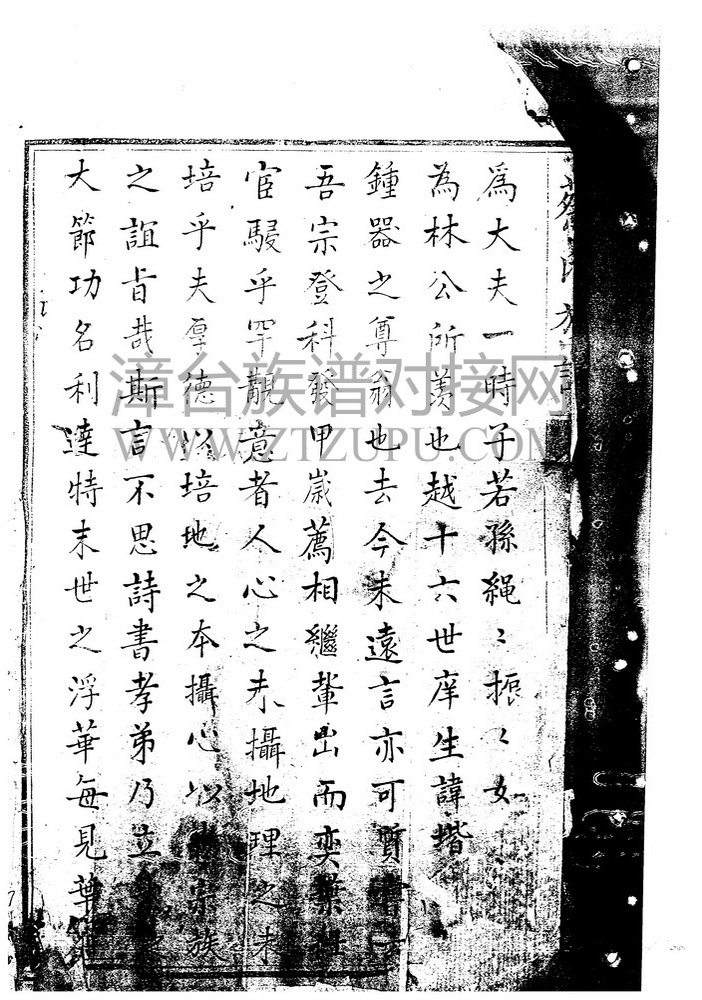 為大夫一時子若孫繩〻振〻女
為林公所羨也越十六世庠生諱堦
鍾器之尊翁也去今未遠言亦可質
吾宗登科發甲歲薦相繼輩出而奕葉
宦駸乎罕覩意者人心之未攝地理之未
培乎夫厚德以培地之本攝心以宗族
之誼旨哉斯言不思詩書孝弟乃立
大節功名利達特末世之浮華每見華
漳台族谱对接网
WWW.ZTZUPU.COM